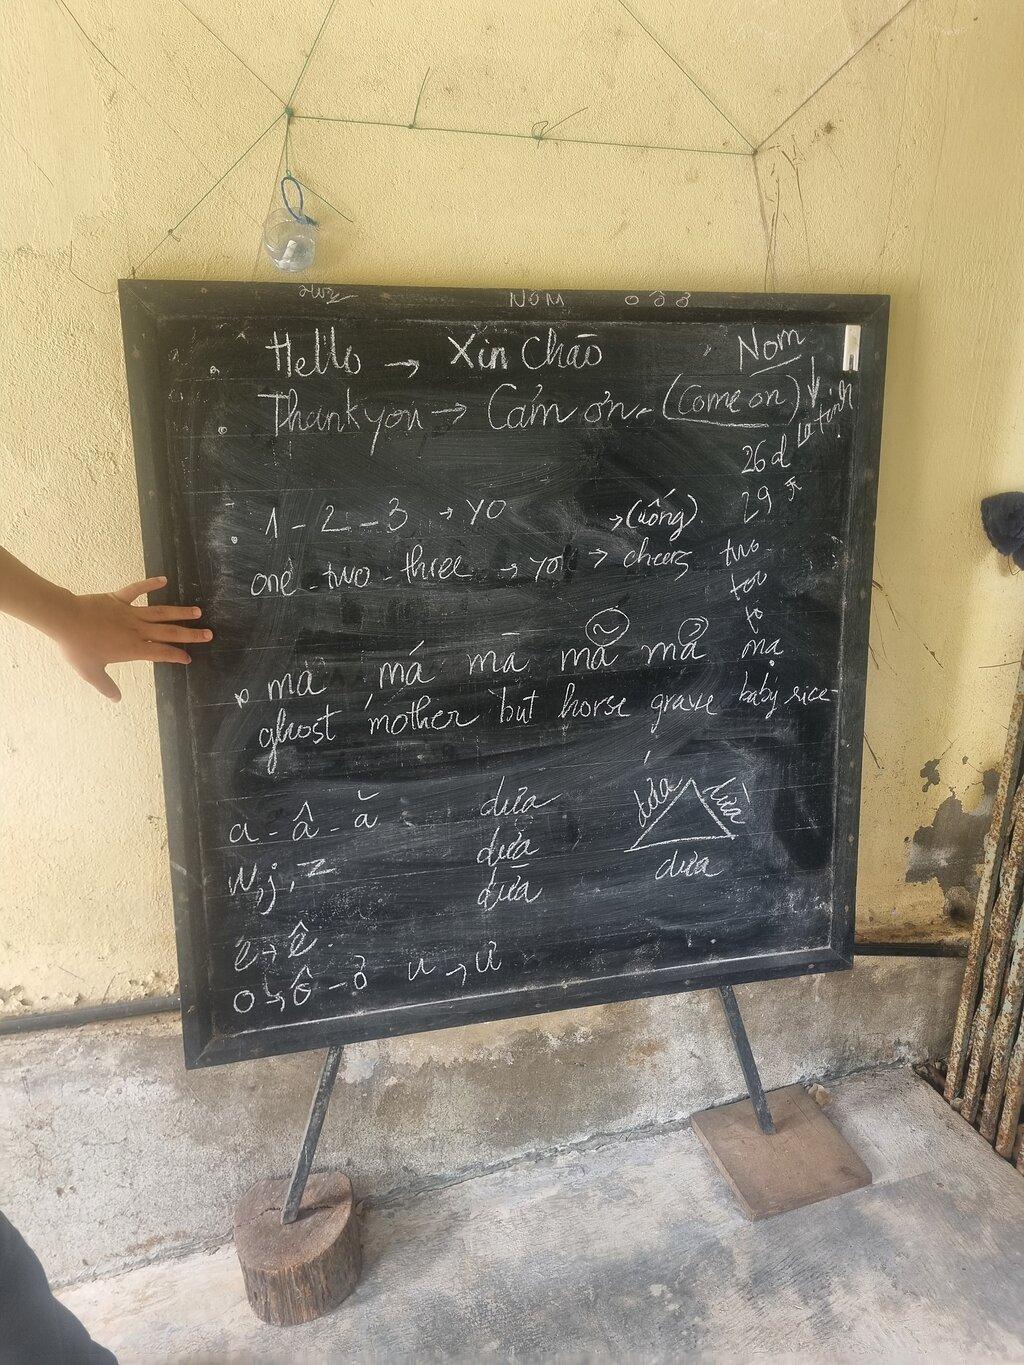 NÔM
Hello → Xin Chào Nom
Thank you → Cảm ơn. (Come on) ↓ Latinh
26 d
29
1 - 2 - 3 → YO → (uống).
one - two - three → yo! → cheers two
má má mā mã mả mạ
ghost mother but horse grave baby rice
a - â - ă dưa dứa dừa
w, j, z dứa dưa
dừa
e → ê
o → ô - ở u → ư